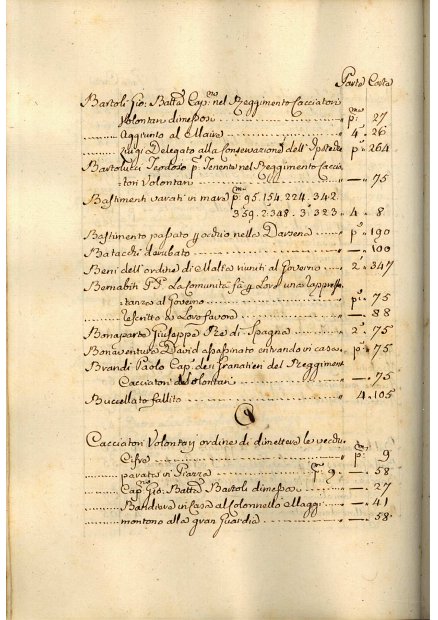 Parte Carta
Bartoli Gio: Batta Cap.no nel Reggimento Cacciatori
Volontari dimessosi p.ma 27
Aggiunto al Maire 4.a 26
Luigi Delegato alla Conservazione dell' p.a 264
Bartolucci Teodoso p.o Tenente nel Reggimento Caccia
tori Volontari — 75
Bastimenti varati in mare p.ma 95. 154. 224. 342.
359. 2.a 348. 3.a 323 4.a 8
Bastimento passato nella Darsena p.a 190
Batacchi derubato — 100
Beni dell'ordine di Malta riuniti al Governo 2.a 347
Bernabiti PP. La Comunità fà p Loro una rappresen
tanza al Governo p.a 75
Rescritto a Loro favore — 88
Bonaparte Giuseppe Re di Spagna 2.a 75
Bonaventura David assassinato entrando in casa p.a 75
Brandi Paolo Cap. dei Granatieri del Reggimento
Cacciatori Volontari — 75
Buccellato fallito 4. 105
C
Cacciatori Volontarj ordine di dimettere le vecchie
Cifre p.ma 9
parata in Piazza p.ma 9. — 58
Cap.no Gio: Batta Bartoli dimessosi — 27
Bandiera in Casa al Colonnello Maggi — 41
montono alla gran Guardia — 58